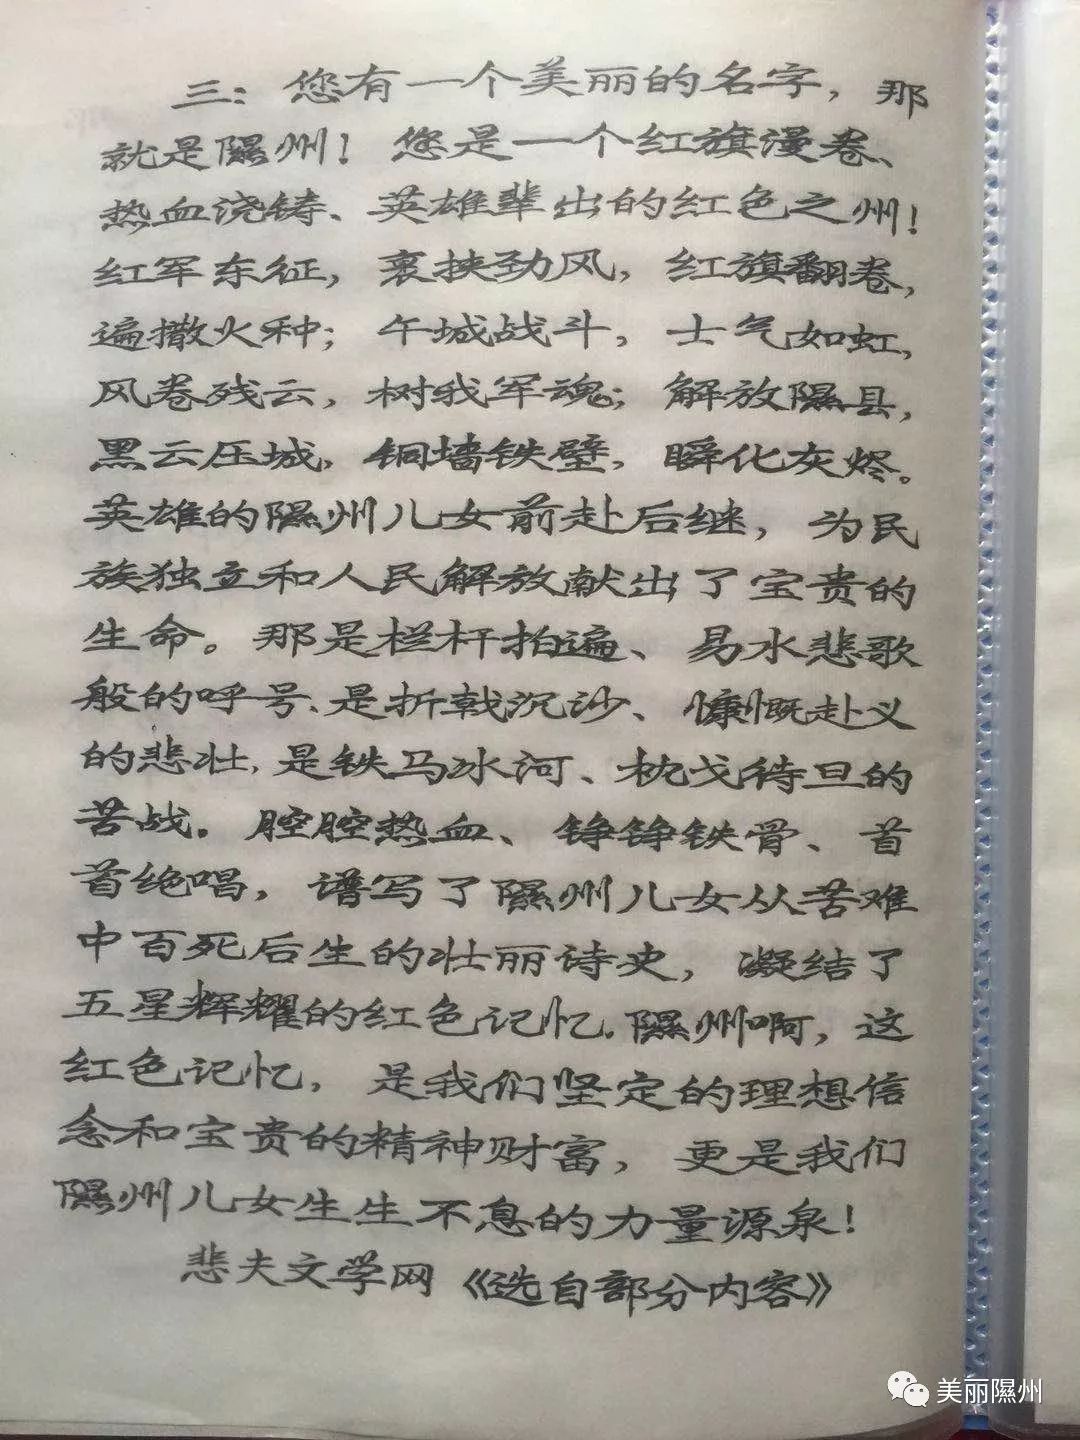 三：您有一个美丽的名字，那
就是隰州！您是一个红旗漫卷、
热血浇铸、英雄辈出的红色之州！
红军东征，裹挟劲风，红旗翻卷，
遍撒火种；午城战斗，士气如虹，
风卷残云，树我军魂；解放隰县，
黑云压城，铜墙铁壁，瞬化灰烬。
英雄的隰州儿女前赴后继，为民
族独立和人民解放献出了宝贵的
生命。那是栏杆拍遍、易水悲歌
般的呼号、是折戟沉沙、慷慨赴义
的悲壮，是铁马冰河、枕戈待旦的
苦战。腔腔热血、铮铮铁骨、首
首绝唱，谱写了隰州儿女从苦难
中百死后生的壮丽诗史，凝结了
五星辉耀的红色记忆。隰州啊，这
红色记忆，是我们坚定的理想信
念和宝贵的精神财富，更是我们
隰州儿女生生不息的力量源泉！
悲夫文学网《选自部分内容》
美丽隰州